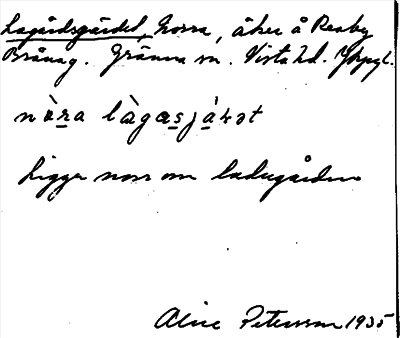 Lagårdsgärdet, Norra, åker å Reaby
Bråneg. Gränna sn. Vista hd. Jkpgl.
nò̀ra làgasjákat
Ligger norr om ladugården
Alice Petersson 1935